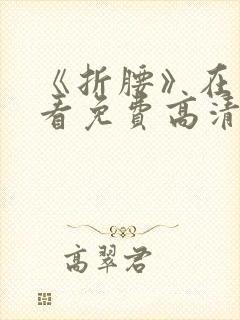 《折腰》在
看免费高清
高翠君